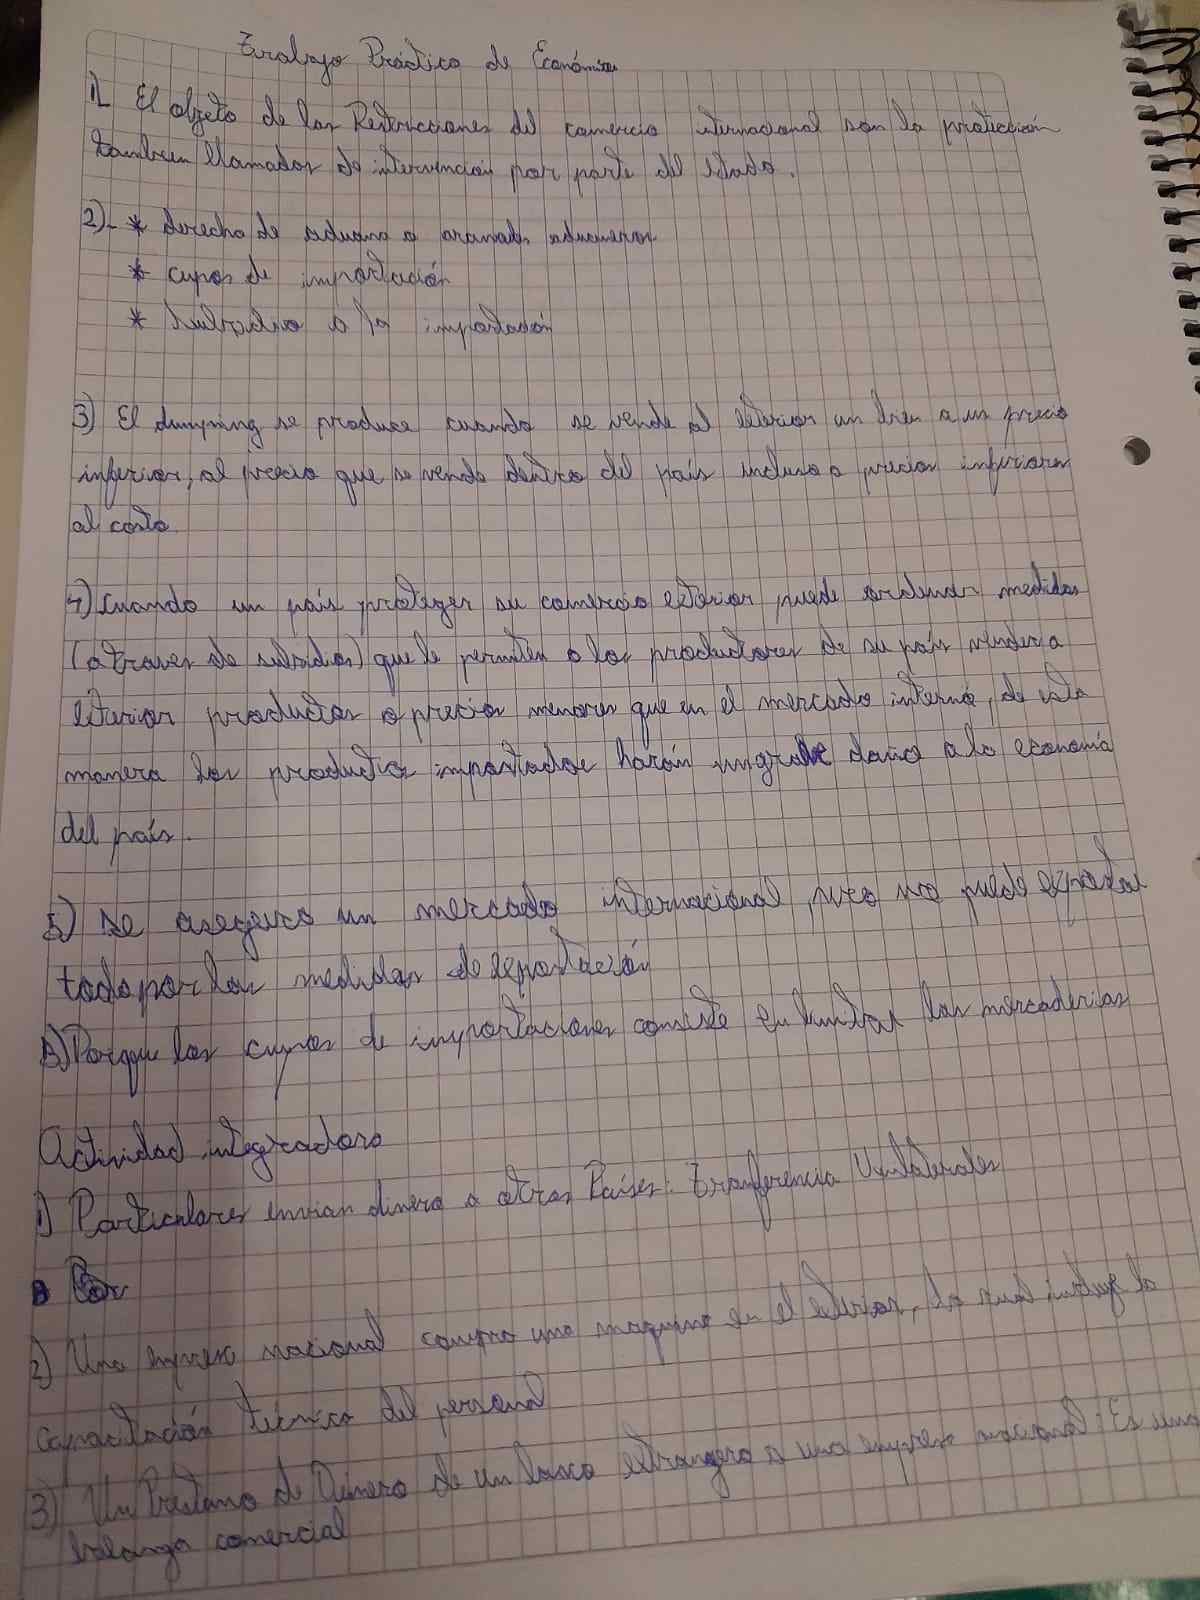 Trabajo Práctico de Económia
1) El objeto de las Restricciones del comercio internacional son la protección
tambien llamados de intervención por parte del estado.
2)- * derecho de aduana o aranceles aduaneros
* cupos de importación
* Subsidio a la importación
3) El dumping se produce cuando se vende al exterior un bien a un precio
inferior, al precio que se vende dentro del país incluso a precios inferiores
al costo
4) Cuando un país proteger su comercio exterior, puede ordenar medidas
(a traves de subsidios) que le permiten a los productores de su país vender a
exterior productos a precios menores que en el mercado interno, de esta
manera los productos importados harán un grave daño a la economía
del país.
5) Se asegura un mercado internacional, pero no puede exportar
todo por las medidas de exportación
B) Porque los cupos de importaciones consiste en limitar las mercaderias
Actividad integradora
1) Particulares envian dinero a otros Países: Tranferencia Unilaterales
Por
2) Una empresa nacional compra una maquina en el exterior,
capacitación técnica del personal
3) Un Prestamo de Dinero de un banco extrangero a una empresa nacional: Es una
balanza comercial